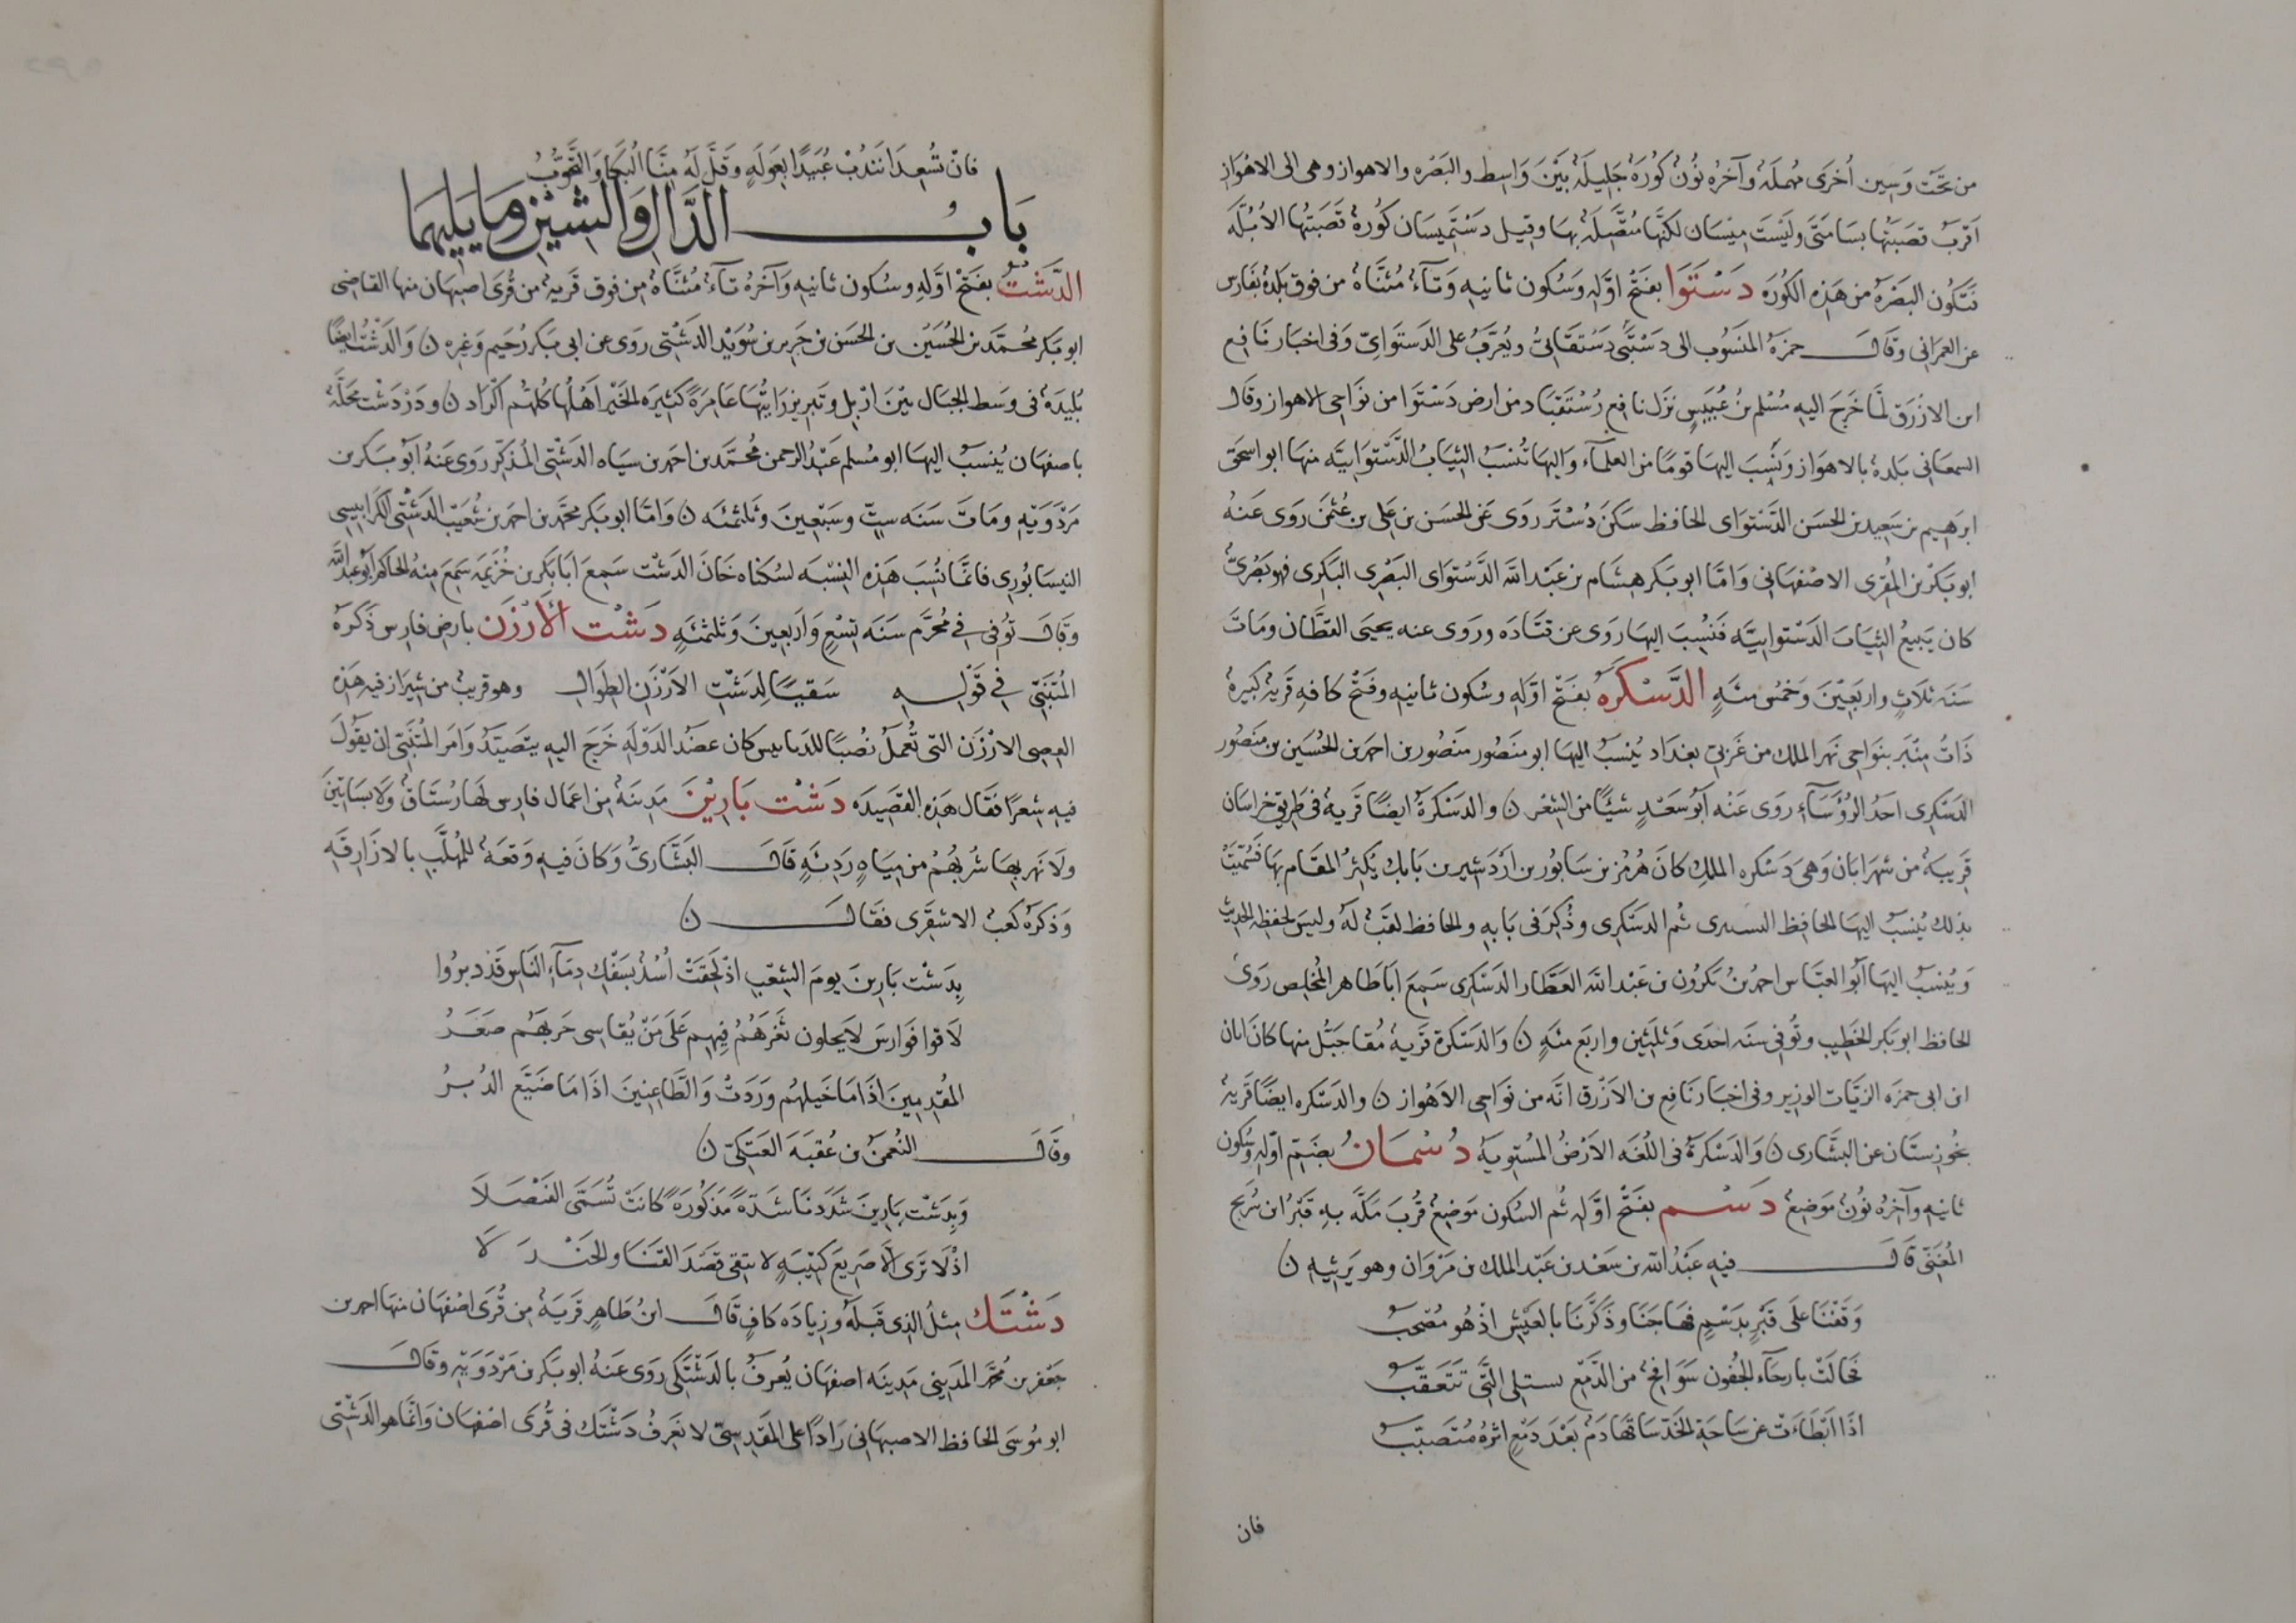 من تحت وسين أخرى مهملة وآخره نون كورة جليلة بين واسط والبصره والاهواز وهى الى الاهواز
اقرب قصبتها بسامتى وليست ميسان لكنها متصلة بها وقيل دستميسان كورة قصبتها الأبلّه
فتكون البصرة من هذه الكورة دستوا بفتح اوله وسكون ثانيه وتآء مثناة من فوق بلدة بفارس
عن العمرانى وقال حمزة المنسوب الى دستبى دستقانىّ ويعرّب على الدستوائىّ وفى اخبار نافع
ابن الازرق لمّا خرج اليه مسلم بن عبيس نزل نافع رستقباد من ارض دستوا من نواحى الاهواز وقال
السمعانى بلدة بالاهواز ونسب اليها قوما من العلمآء واليها تنسب الثياب الدستوائيّه منها ابو اسحق
ابرهيم بن سعيد بن الحسن الدستواى الحافظ سكن دستر روى عن الحسن بن على بن عثمن روى عنه
ابو بكر بن المقرى الاصفهانى وامّا ابو بكر هشام بن عبد الله الدستواى البصرى البكرى فهو بصرىّ
كان يبيع الثياب الدستوائيّه فنسب اليها روى عن قتاده وروى عنه يحيى القطّان ومات
سنه ثلاثٍ واربعين وخمس مئهٍ الدَّسْكَرَة بفتح اوّله وسكون ثانيه وفتح كافه قرية كبيرة
ذات منبر بنواحى نهر الملك من غربىّ بغداد ينسب اليها ابو منصور منصور بن احمد بن الحسين بن منصور
الدسكرى احد الرؤسآء روى عنه ابو سعد شيئًا من الشعر ن والدسكرة ايضًا قرية فى طريق خراسان
قريبة من شهرابان وهى دسكره الملك كان هرمز بن سابور بن اردشير بن بابك يكثر المقام بها فسمّيت
بذلك ينسب اليها الحافظ ثم الدسكرى وذكر فى بابه والحافظ لقب له وليس لحفظه الحديث
وينسب اليها ابو العباس احمد بن بكرون بن عبد الله العطار الدسكرى سمع ابا طاهر المخلص روى
الحافظ ابو بكر الخطيب وتوفى سنه احدى وثلثين واربع مئهٍ ن والدسكرة قرية مقابل جبّل منها كان ابان
ابن ابى حمزه الزيّات الوزير وفى اخبار نافع بن الازرق انّه من نواحى الاهواز ن والدسكره ايضًا قرية
بخوزستان عن البشّارى ن والدسكرة فى اللغه الارض المستوية دسمان بضمّ اوّله وسكون
ثانيه وآخره نون موضع دسم بفتح اوّله ثم السكون موضع قرب مكّه به قبر ابن سريج
المغنّى قال فيه عبد الله بن سعد بن عبد الملك بن مروان وهو يرثيه ن
وقفنا على قبرٍ بدسمٍ فهاجنا وذكّرنا بالعيش اذ هو مصحب
فجالت بارجآء الجفون سوافح من الدمع تستلى التى تتعقّب
اذا ابطاءت عن ساحة الخد ساقها دم بعد دمع اثره متصبّب
فان
فان تسعدا نندب عبيدًا بعوله وقلّ له منّا البكا والتحوّب
بابُ الدَّال والشين وما يليهما
الدَّشْت بفتح اوّله وسكون ثانيه وآخره تآء مثنّاة من فوق قرية من قرى اصبهان منها القاضى
ابو بكر محمّد بن الحسين بن الحسن بن جرير بن سويد الدشتى روى عن ابى بكر بن رحيم وغيره ن والدشت ايضًا
بليدة فى وسط الجبال بين اربل وتبريز رايتها عامرة كثيره الخير اهلها كلّهم اكراد ن ودردشت محلّة
باصفهان ينسب اليها ابو مسلم عبد الرحمن محمّد بن احمد بن سياه الدشتى المذكّر روى عنه ابو بكر بن
مردويه ومات سنه ستٍّ وسبعين وثلثمئه ن وامّا ابو بكر محمّد بن احمد بن شعيب الدشتى الكرابيسى
النيسابورى فانّما نسب هذه النسبه لسكناه خان الدشت سمع ابا بكر بن خزيمه سمع منه الحاكم ابو عبد الله
وقال توفى فى محرّم سنه تسعٍ واربعين وثلثمئهٍ دشت الأرزن بارض فارس ذكره
المتنبّى فى قوله سقيًا لدشت الارزن الطوال وهو قريب من شيراز فيه هذه
العصى الارزن التى تعمل نصبًا للدبابيس كان عضد الدوله خرج اليه يتصيّد وامر المتنبّى ان يقول
فيه شعرًا فقال هذه القصيده دشت بارين مدينة من اعمال فارس لها رستاق ولا بساتين
ولا نهر بها شربهم من مياه رديّه قال البشّارىّ وكان فيه وقعة للمهلّب بالازارقه
وذكره كعب الاشقرى فقال ن
بدشت بارين يوم الشعب اذ لحقت اسد بسفك دمآء الناس قد دبروا
لاقوا فوارس لا يخلون ثغرهم فيهم على من يقاسى حربهم صعر
المقدمين اذا ما خيلهم وردت والطاعنين اذا ما ضيّع الدبر
وقال النعمن بن عقبه العتكىّ ن
وبدشت بارين شددنا شدّة مذكورة كانت تسمّى الفيصلا
اذ لا ترى الّا صريع كتيبهٍ لا يتقى قصد القنا والجندلا
دشتك مثل الذى قبله وزيادة كاف قال ابن طاهر قرية من قرى اصفهان منها احمد بن
جعفر بن محمّد المدينى مدينه اصفهان يعرف بالدشتكى روى عنه ابو بكر بن مردويه وقال
ابو موسى الحافظ الاصبهانى رادًّا على المقدسىّ لا نعرف دشتك فى قرى اصفهان وانّما هو الدشتى